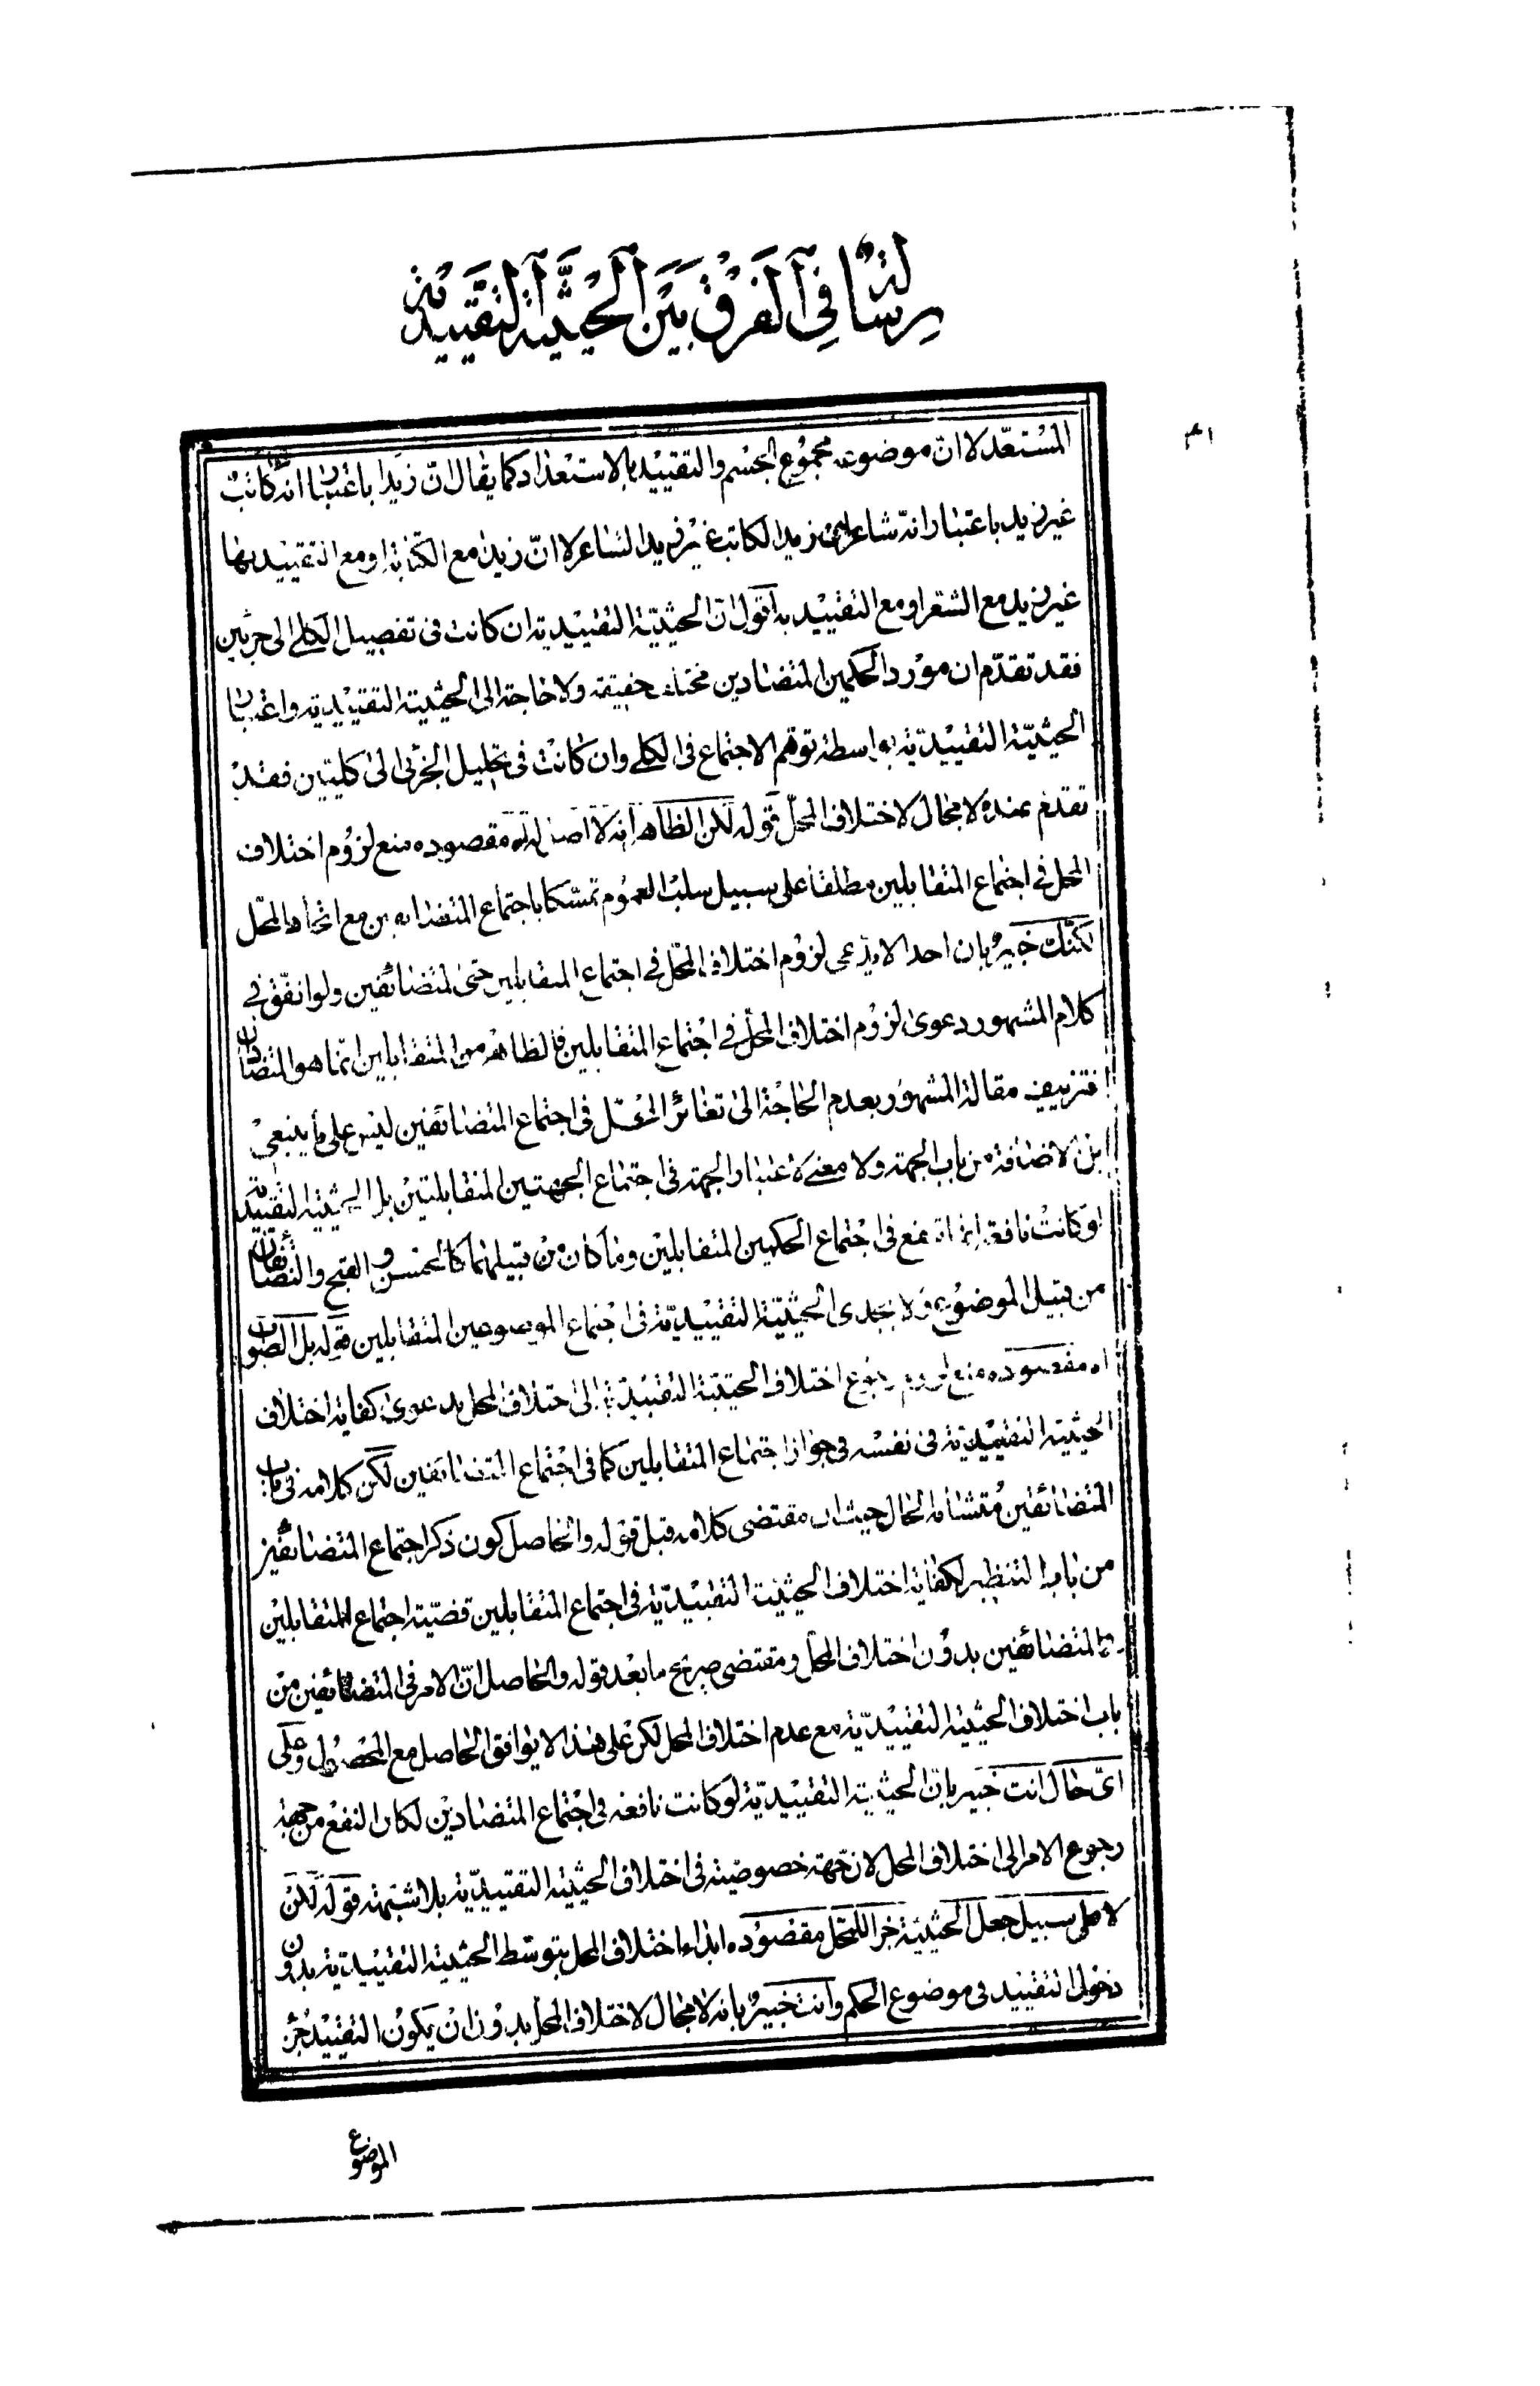 رسالة في الفرق بين الحيثية التقييدية
المستعد لا ان موضوعه مجموع الجسم والتقييد بالاستعداد كما يقال ان زيدا باعتبار انه كاتب
غير زيد باعتبار انه شاعر زيد الكاتب غير زيد الشاعر لا ان زيدا مع الكتابة او مع التقييد بها
غير زيد مع الشعر او مع التقييد به اقول ان الحيثية التقييدية ان كانت فى تفصيل الكلي الى جزئين
فقد تقدم ان مورد الحكمين المتضادين مختلف حقيقة ولا حاجة الى الحيثية التقييدية واعتبار
الحيثية التقييدية بواسطة توهم الاجتماع فى الكلي وان كانت فى تحليل الجزئى الى كليتين فقد
تقدم عنده لا مجال لاختلاف المحل قوله لكن الظاهر انه لا اصل له مقصوده منع لزوم اختلاف
المحل في اجتماع المتقابلين مطلقا على سبيل سلب العموم تمسكا باجتماع المتضايفين مع اتحاد المحل
لكنك خبير بان احدا لا يدعى لزوم اختلاف المحل في اجتماع المتقابلين حتى المتضائفين ولو اتفق في
كلام المشهور دعوى لزوم اختلاف المحل في اجتماع المتقابلين فالظاهر من المتقابلين انما هو المتضادان
فتزييف مقالة المشهور بعدم الحاجة الى تغائر المحل فى اجتماع المتضائفين ليس على ما ينبغي
الاضافة من باب الجهة ولا معنى لاعتبار الجهة فى اجتماع الجهتين المتقابلتين بل الحيثية التقييدية
لو كانت نافعة انما تنفع فى اجتماع الحكمين المتقابلين وما كان من قبيلهما كالحسن والقبح والمتضائفان
من قبيل الموضوع ولا يجدى الحيثية التقييدية فى اجتماع الموضوعين المتقابلين قوله بل الصواب
اه مقصوده منع لزوم رجوع اختلاف الحيثية التقييدية الى اختلاف المحل بدعوى كفاية اختلاف
الحيثية التقييدية فى نفسه فى جواز اجتماع المتقابلين كما فى اجتماع المتضائفين لكن كلامه فى باب
المتضائفين متشابه الحال حيث ان مقتضى كلامه قبل قوله والحاصل كون ذكر اجتماع المتضائفين
من باب التنظير لكفاية اختلاف الحيثية التقييدية فى اجتماع المتقابلين قضية اجتماع المتقابلين
المتضائفين بدون اختلاف المحل ومقتضى صريح ما بعد قوله والحاصل ان الامر فى المتضائفين من
باب اختلاف الحيثية التقييدية مع عدم اختلاف المحل لكن على هذا لا يوافق الحاصل مع المحصول وعلى
اى حال انت خبير بان الحيثية التقييدية لو كانت نافعه فى اجتماع المتضادين لكان النفع من جهة
رجوع الامر الى اختلاف المحل لا من جهة خصوصية فى اختلاف الحيثية التقييدية بلا شبهة قوله لكن
لا على سبيل جعل الحيثية جزا للمحل مقصوده ابداء اختلاف المحل بتوسط الحيثية التقييدية بدون
دخول التقييد فى موضوع الحكم وانت خبير بانه لا مجال لاختلاف المحل بدون ان يكون التقييد جزء
الموضوع